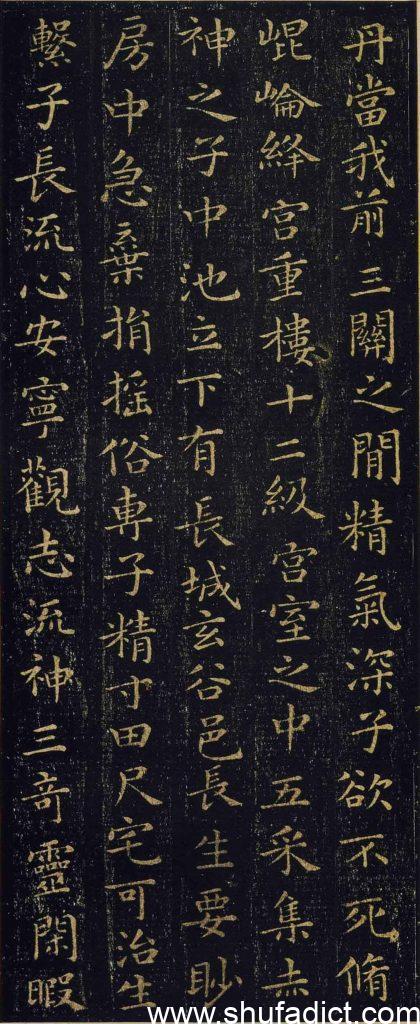 丹當我前三關之閒精氣深子欲不死脩
崐崘絳宮重樓十二級宮室之中五采集赤
神之子中池立下有長城玄谷邑長生要眇
房中急棄捐搖俗專子精寸田尺宅可治生
繫子長流心安寧觀志流神三奇靈閑暇
www.shufadict.com